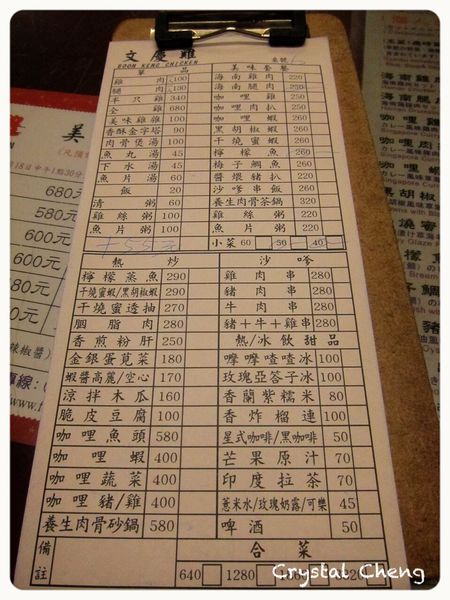 文慶雞
BOON KENG CHICKEN
桌號
單 品
美味套餐
雞 肉 100 海南雞肉 220
腿 肉 100 海南腿肉 250
半只雞 340 咖哩雞 250
全 雞 680 咖哩肉扒 250
美味雞雜 100 咖哩蝦 260
香酥金字塔 90 黑胡椒蝦 260
肉骨煲湯 100 干燒蜜蝦 260
魚丸湯 45 檸檬魚 260
下水湯 45 梅子鯛魚 260
魚片湯 60 醬煨豬扒 260
飯 20 沙嗲串飯 260
清 粥 60 養生肉骨茶鍋 320
雞絲粥 100 雞絲粥 220
魚片粥 100 魚片粥 220
小菜 60 50 40
熱 炒
沙 嗲
檸檬蒸魚 290 雞肉串 280
干燒蜜蝦/黑胡椒蝦 290 豬肉串 280
干燒蜜透抽 270 牛肉串 280
胭脂肉 280 豬+牛+雞串 280
香煎粉肝 250 熱/冰飲甜品
金銀蛋莧菜 180 摩摩喳喳冰 100
蝦醬高麗/空心 170 玫瑰亞答子冰 100
涼拌木瓜 160 香蘭紫糯米 80
脆皮豆腐 100 香炸榴連 100
咖哩魚頭 580 星式咖啡/黑咖啡 50
咖哩蝦 400 芒果原汁 70
咖哩蔬菜 400 印度拉茶 70
咖哩豬/雞 400 薏米水/玫瑰奶露/可樂 45
養生肉骨砂鍋 580 啤酒 50
備註
合 菜
640 1280
680元
580元
600元
600元
Crystal Cheng